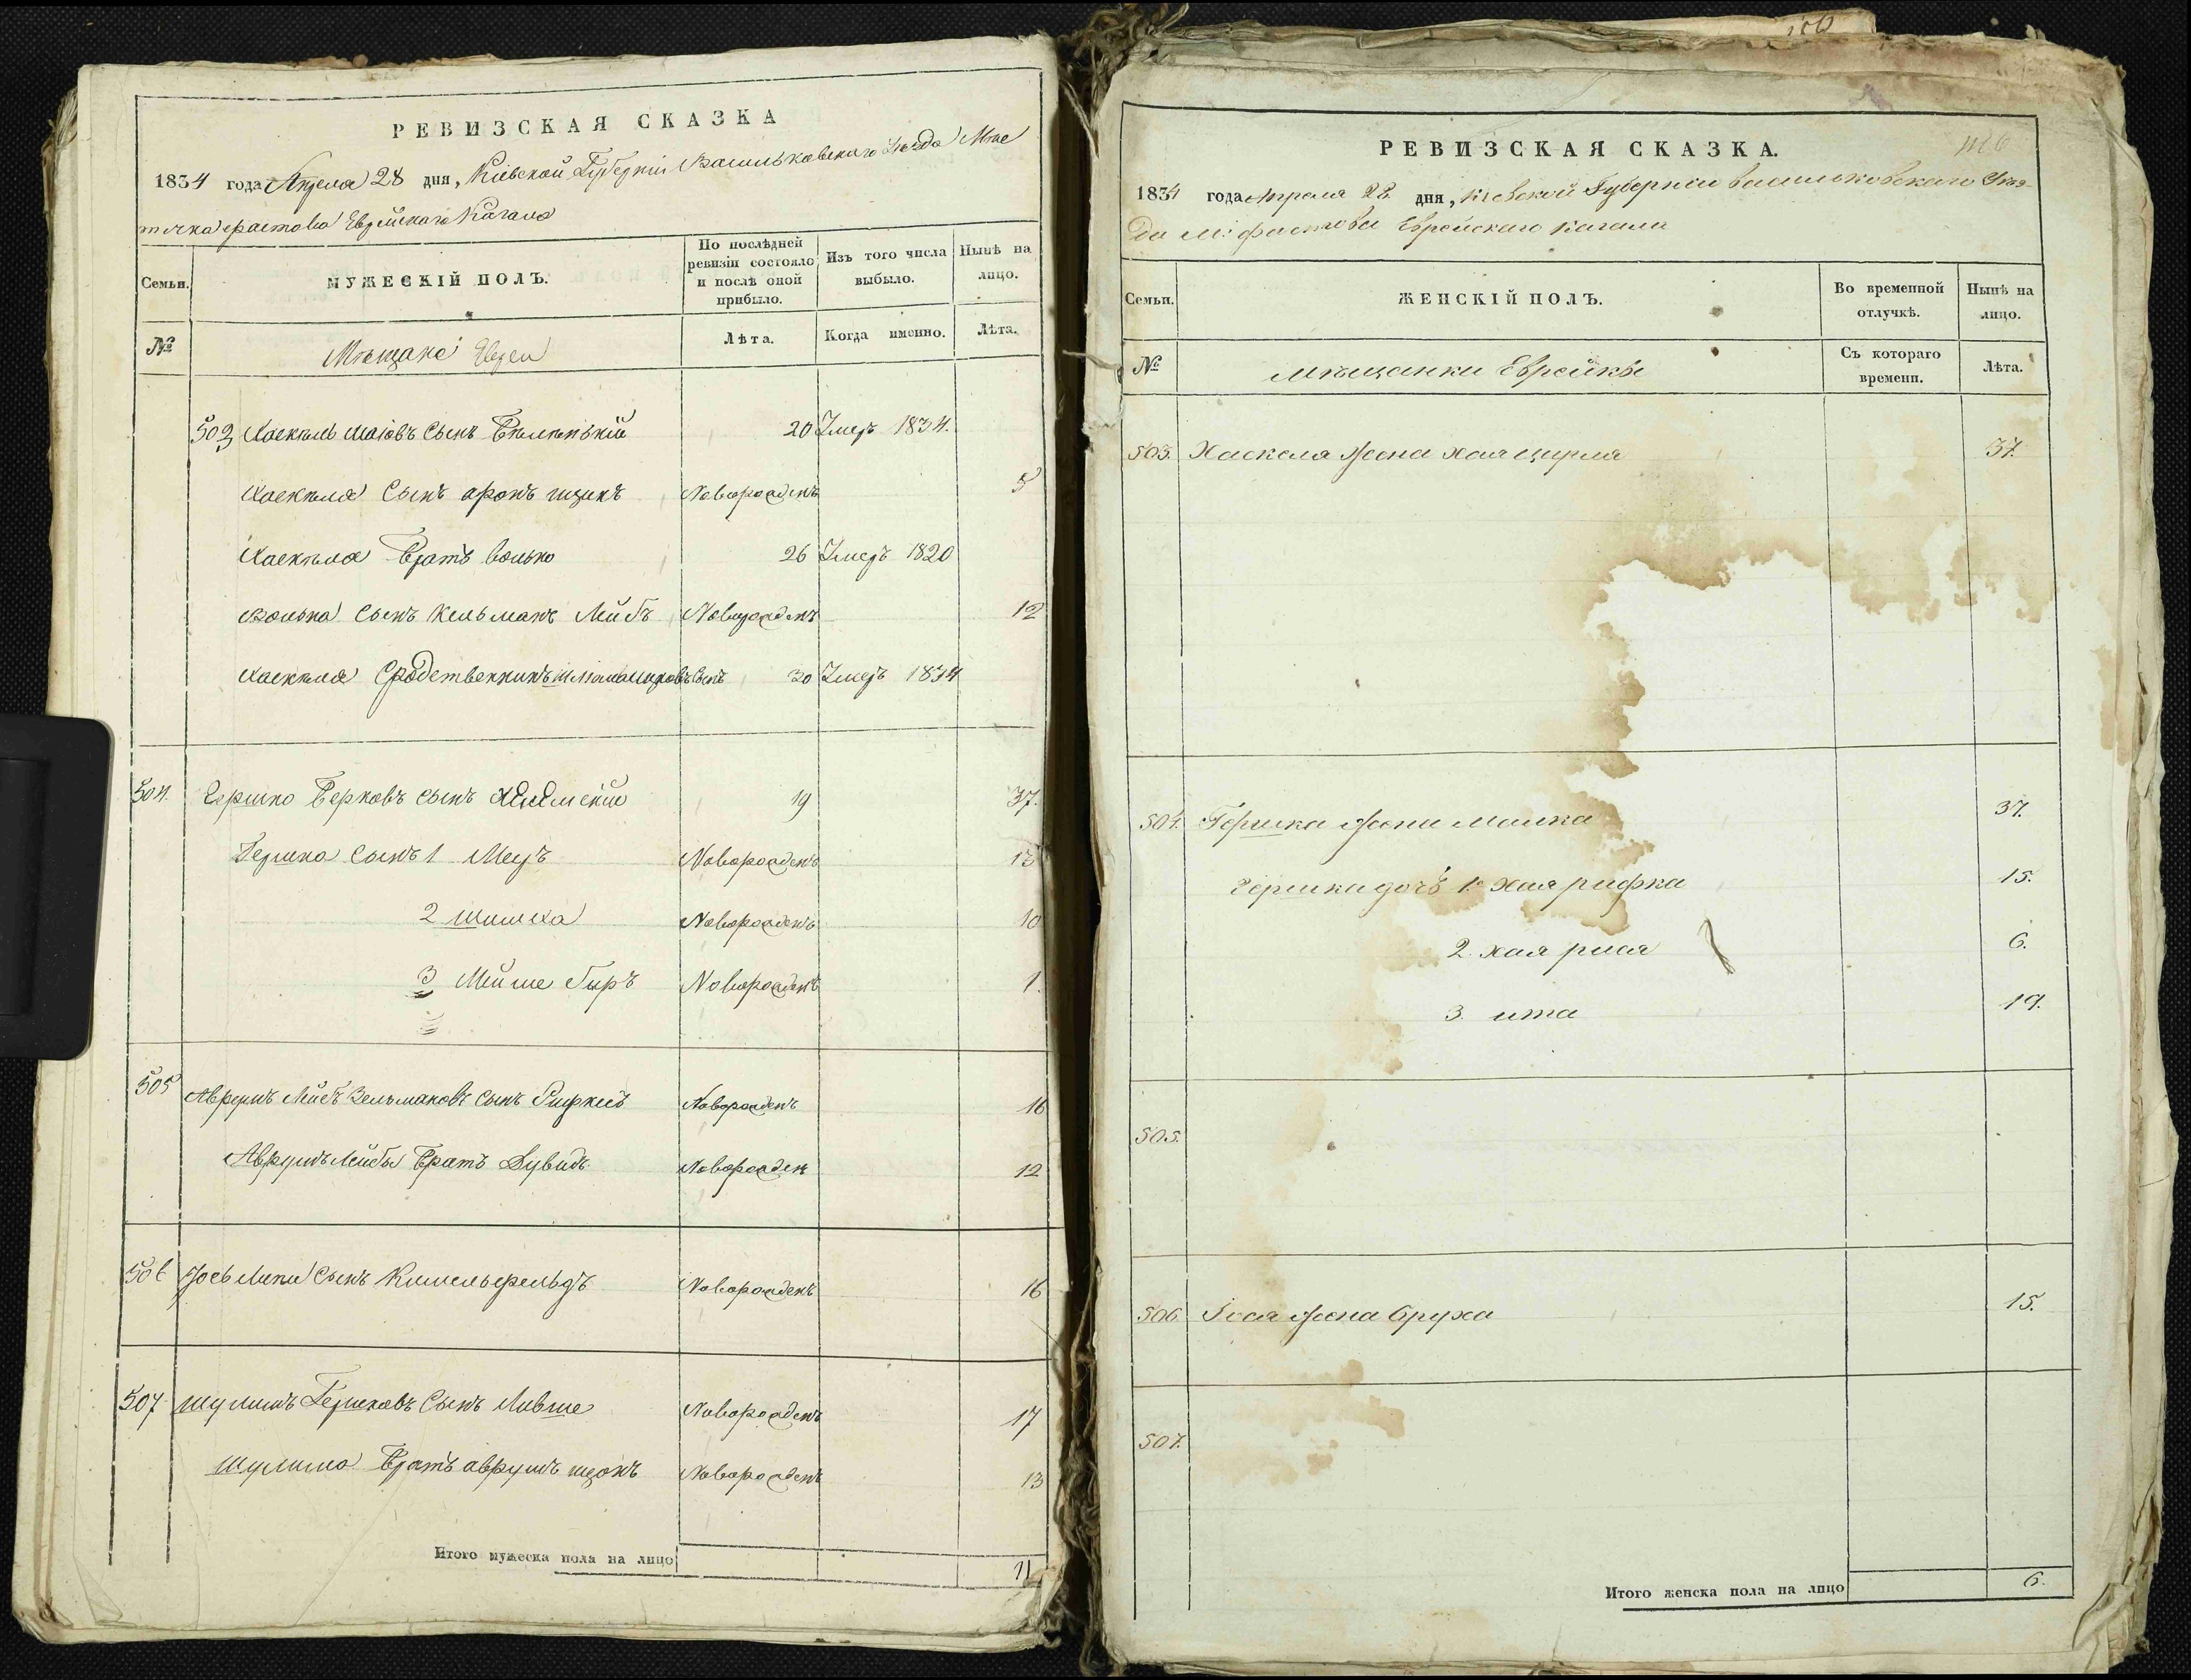 РЕВИЗСКАЯ СКАЗКА
1834 года Апреля 28 дня, Кіевской Губерніи Васильковскаго Уезда Мѣс
течка Фастова Еврейскаго Кагала
Семьи.
МУЖЕСКІЙ ПОЛЪ.
По послѣдней ревизіи состояло и послѣ оной прибыло.
Изъ того числа выбыло.
Нынѣ на лицо.
№
Мѣщане Евреи
Лѣта.
Когда именно.
Лѣта.
503 Хаскель сынъ 20 Умеръ 1834.
Хаскеля Сынъ аронъ ицикъ Новорожденъ 5
Хаскеля Братъ волько 26 Умеръ 1820
Волька Сынъ Кельманъ Лейбъ Новорожденъ 12
Хаскеля Сродственникъ сынъ 30 Умеръ 1834
504. Гершко Берковъ сынъ 19 37.
Гершка Сынъ 1 Мееръ Новорожденъ 15
2 Новорожденъ 10
3 Мейше Новорожденъ 1.
505 Аврумъ Лейбъ Зельмановъ Сынъ Новорожденъ 16
Аврумъ Лейбы Братъ Дувидъ Новорожден 12
506 Іось Липи Сынъ Кимельфельдъ Новорожденъ 16
507 Шулимъ Гершковъ Сынъ Новорожденъ 17
Шулима Братъ аврумъ ицокъ Новорожденъ 13
Итого мужеска пола на лицо 11
РЕВИЗСКАЯ СКАЗКА.
1834 года Апреля 28. дня, Кіевской Губерніи Васильковскаго Уѣз-
да М: Фастова Еврейскаго Кагала
Семьи.
ЖЕНСКІЙ ПОЛЪ.
Во временной отлучкѣ.
Нынѣ на лицо.
№
Мѣщанки Еврейки
Съ котораго времени.
Лѣта.
503. Хаскеля Жена хая цирля 37.
504. Гершка Жена Малка 37.
Гершка дочь 1. Хая рифка 15.
2. хая 6.
3. ита 19.
505.
506. Іося Жена Бруха 15.
507.
Итого женска пола на лицо 6.